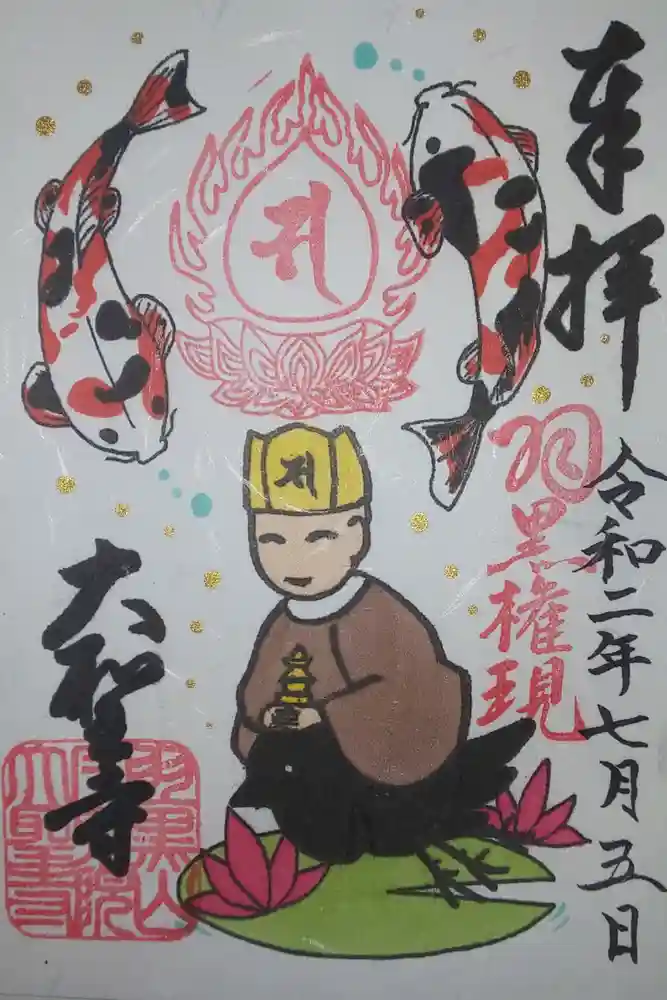 奉拝
羽黒権現
令和二年七月五日
大聖寺
羽黒山